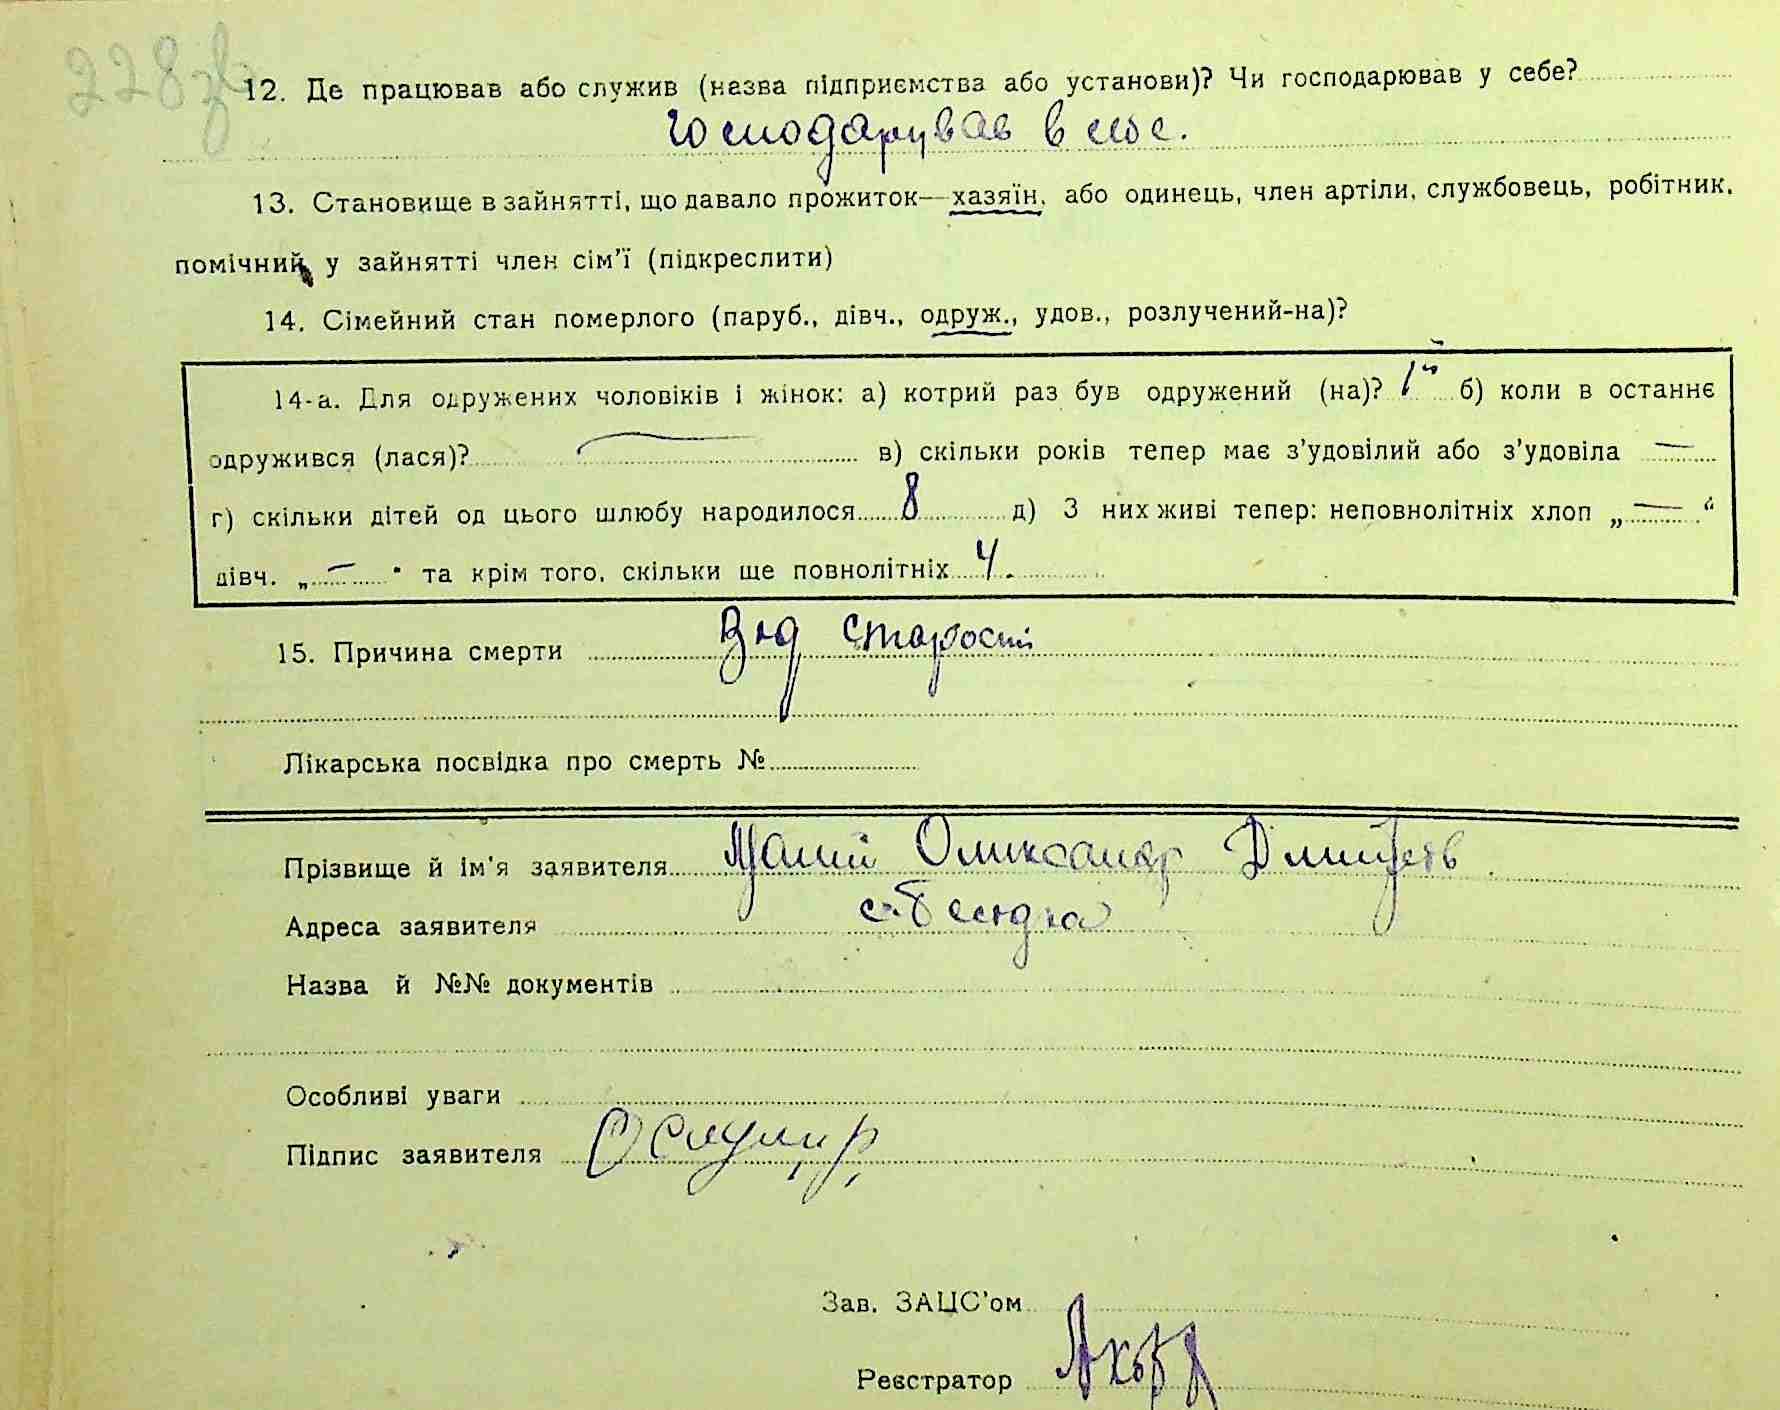 228 зв
12. Де працював або служив (назва підприємства або установи)? Чи господарював у себе?
Господарував в
13. Становище в зайнятті, що давало прожиток—хазяїн, або одинець, член артіли, службовець, робітник,
помічний у зайнятті член сім’ї (підкреслити)
14. Сімейний стан померлого (паруб., дівч., одруж., удов., розлучений-на)?
14-а. Для одружених чоловіків і жінок: а) котрий раз був одружений (на)? 1й б) коли в останнє
одружився (лася)? — в) скільки років тепер має з’удовілий або з’удовіла —
г) скільки дітей од цього шлюбу народилося 8 д) З них живі тепер: неповнолітніх хлоп „—“
дівч. „—" та крім того, скільки ще повнолітніх 4.
15. Причина смерти Від старости
Лікарська посвідка про смерть №
Прізвище й ім’я заявителя Олександр
Адреса заявителя с.
Назва й №№ документів
Особливі уваги
Підпис заявителя
Зав. ЗАЦС’ом
Реєстратор